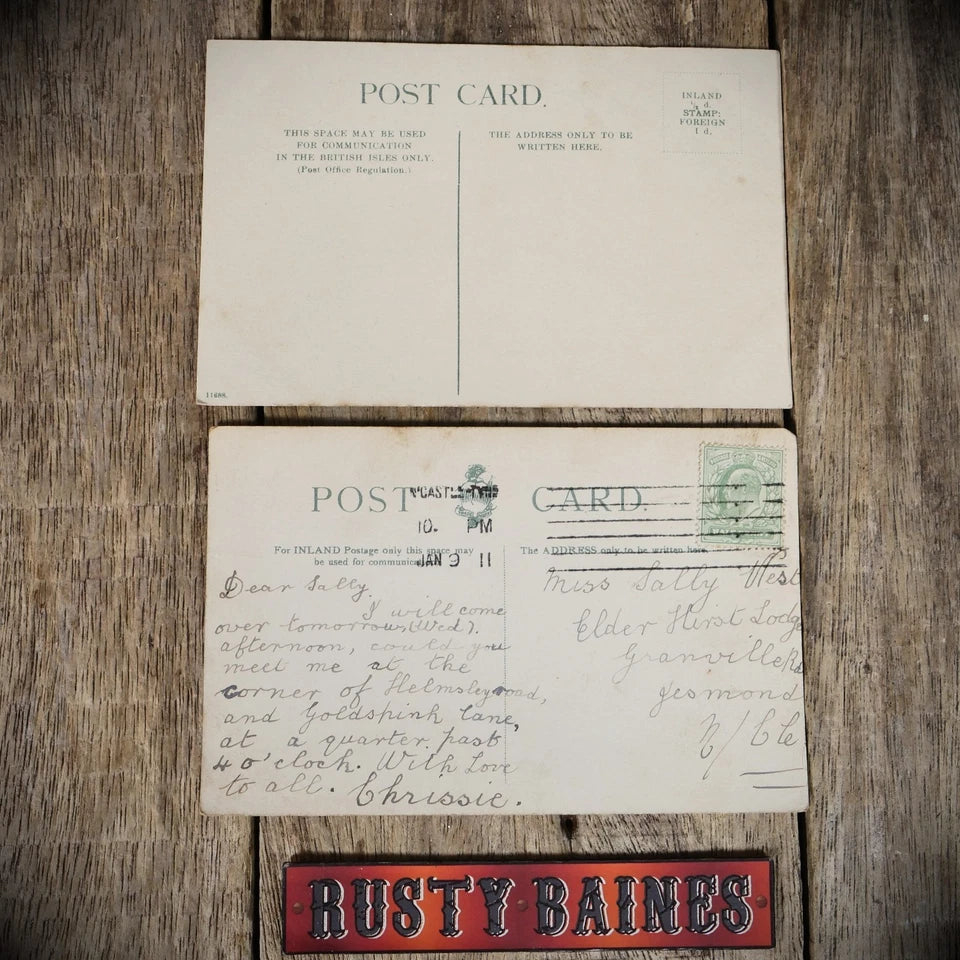 POST CARD.
THIS SPACE MAY BE USED
FOR COMMUNICATION
IN THE BRITISH ISLES ONLY.
(Post Office Regulation.)
THE ADDRESS ONLY TO BE
WRITTEN HERE.
INLAND
½ d.
STAMP:
FOREIGN
1 d.
11688.
POST CARD.
N'CASTLE-TYNE
10. PM
JAN 9 11
For INLAND Postage only this space may
be used for communication.
The ADDRESS only to be written here.
Dear Sally,
I will come
over tomorrow, (Wed).
afternoon, could you
meet me at the
corner of Helmsley road,
and Goldspink lane,
at a quarter past
4 o'clock. With Love
to all. Chrissie.
Miss Sally West
Elder Hirst Lodge
Granville Rd
Jesmond
N/Cle
RUSTY BAINES